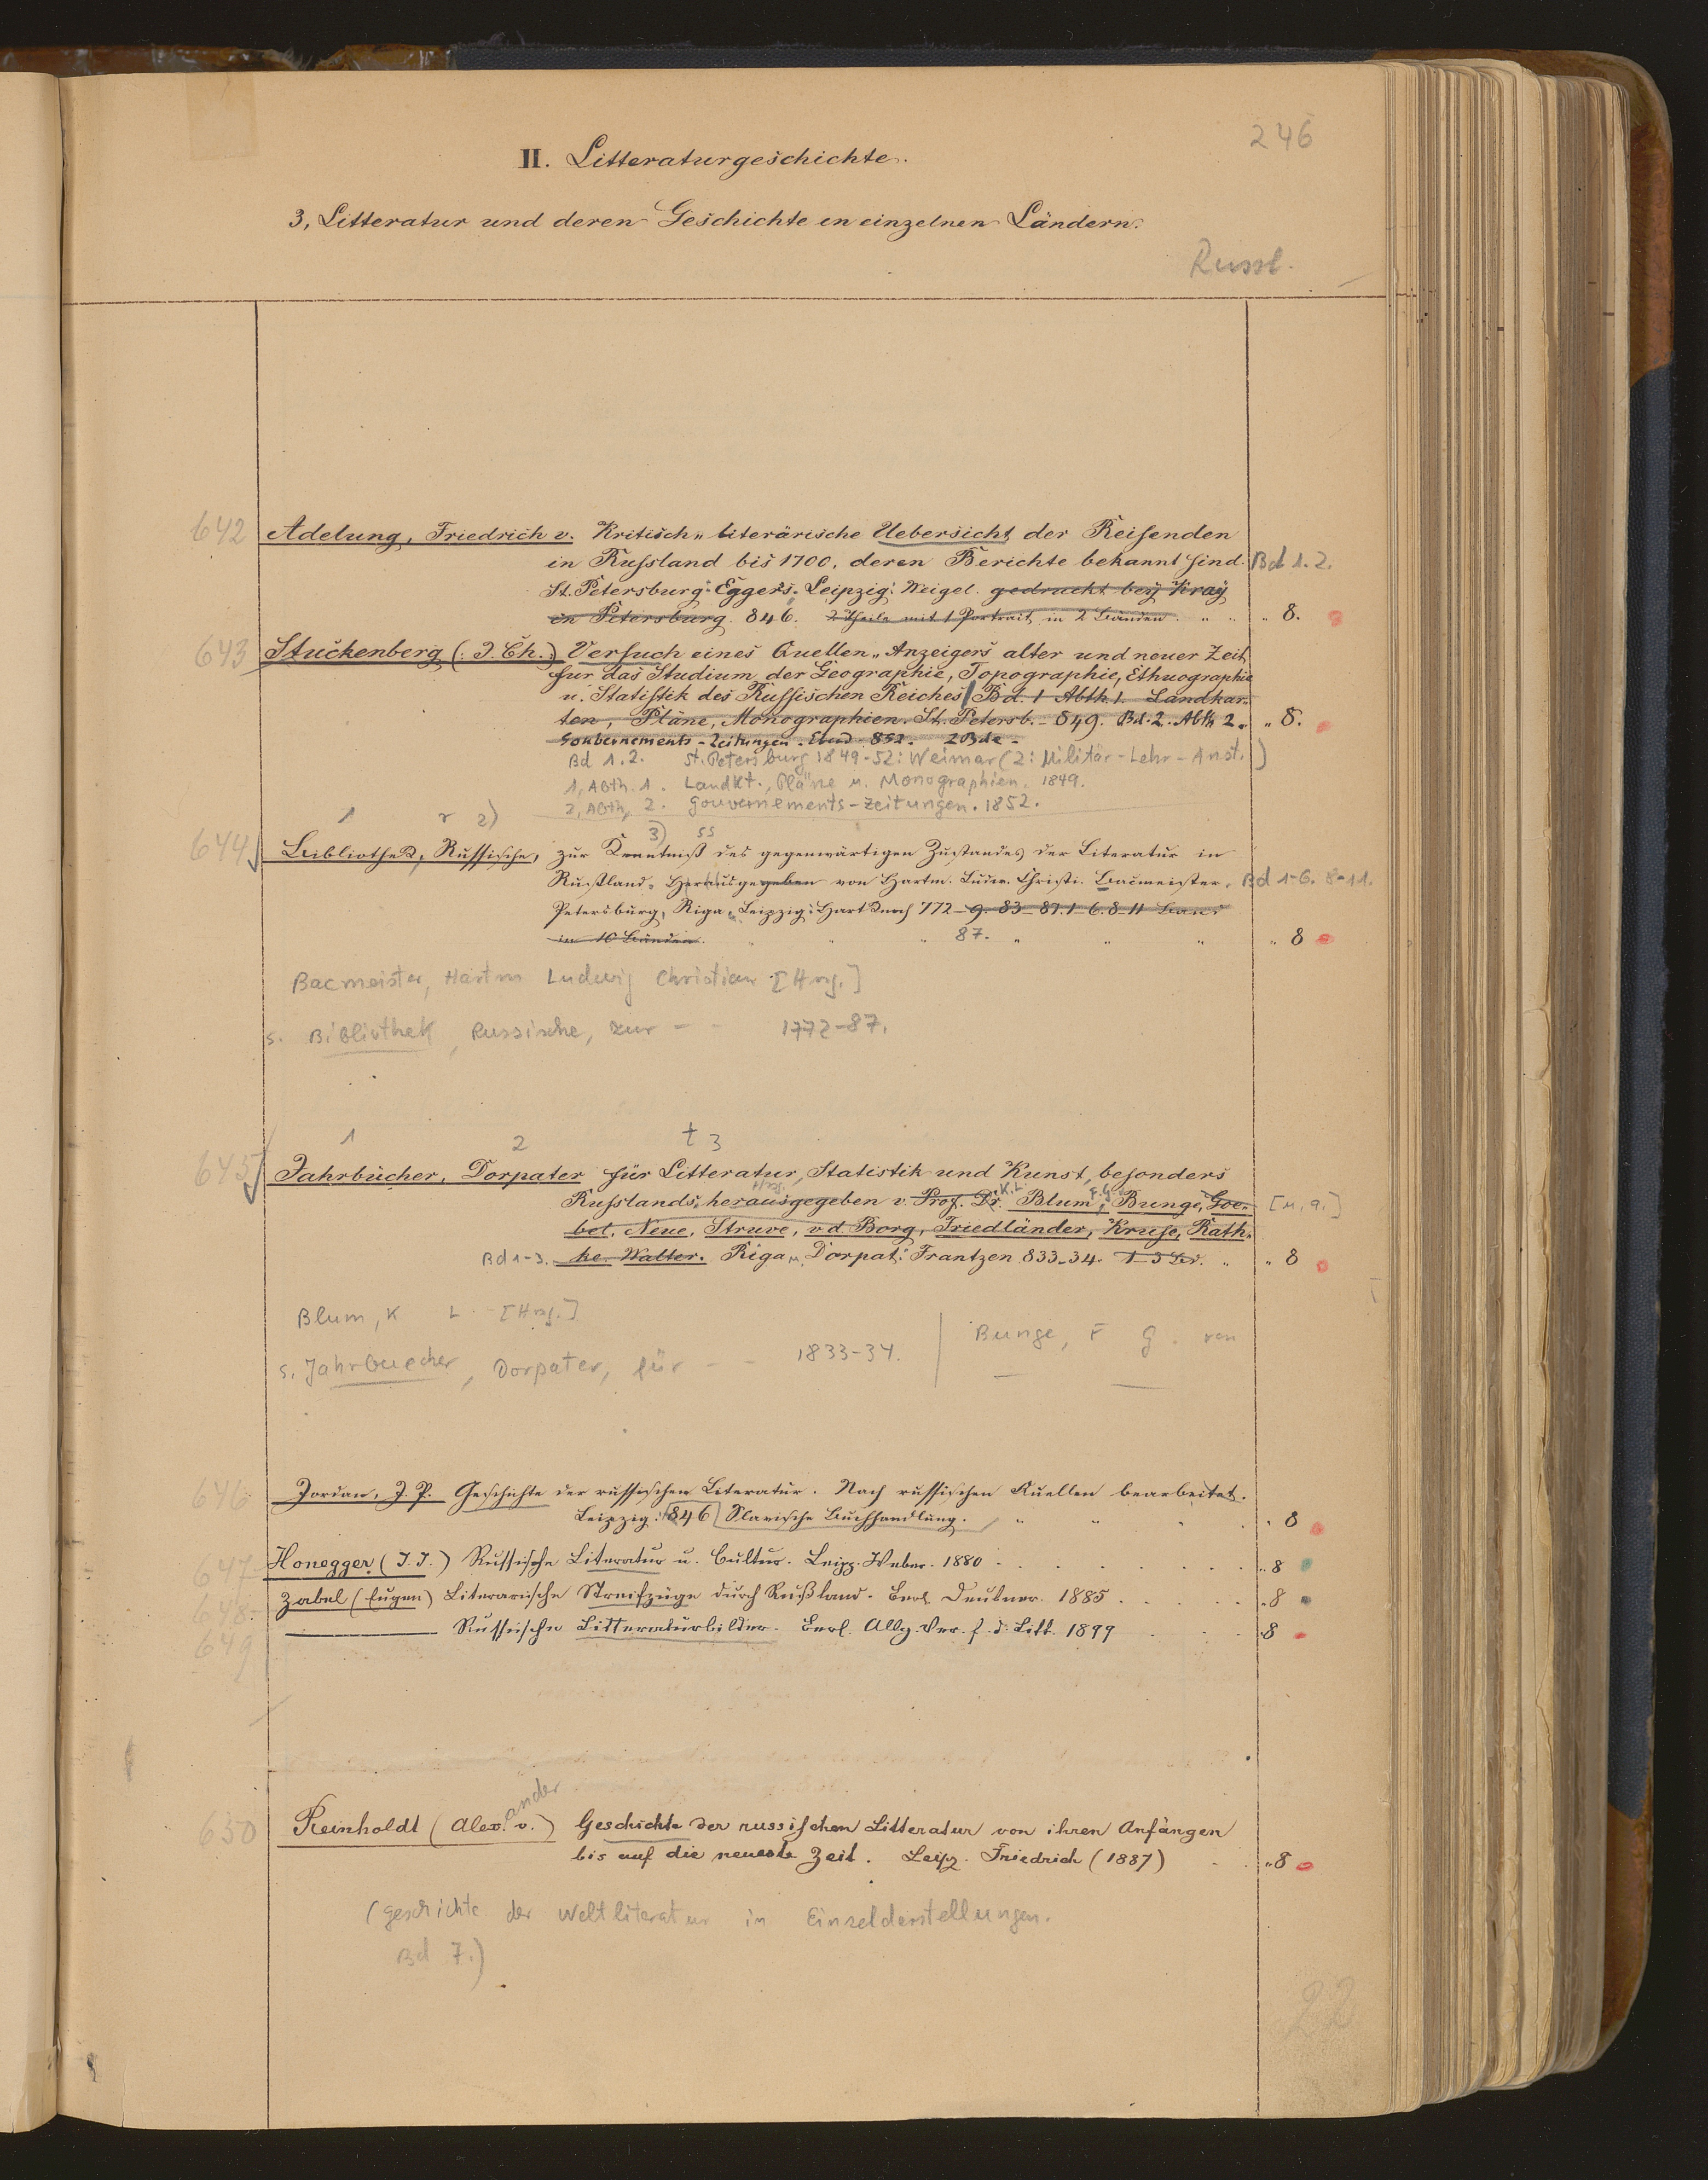 246
II. Litteraturgeschichte.
3, Litteratur und deren Geschichte in einzelnen Ländern.
Russl.
642 Adelung, Friedrich v. Kritisch„literärische Uebersicht der Reisenden
in Russland bis 1700, deren Berichte bekannt sind. Bd 1.2.
St. Petersburg: Eggers. Leipzig: Weigel. gedruckt bey Kray
in Petersburg. 846. 2 Theile mit 1 Portrait, in 2 Bänden. „ „ „ 8.
643 Stuckenberg (: J. Ch.:) Versuch eines Quellen„Anzeigers alter und neuer Zeit
für das Studium der Geographie, Topographie, Ethnographie
u. Statistik des Russischen Reiches Bd. 1 Abth. 1. Landkar„
ten, Pläne, Monographien. St. Petersb. 849. Bd. 2. Abth 2. „ 8.
Goubernements-Zeitungen. Ebend. 852. 2 Bde.
Bd 1.2. St. Petersburg 1849-52: Weimar (2: Militär-Lehr-Anst.)
1, Abth. 1. Landkt., Pläne u. Monographien. 1849.
2, Abth. 2. Gouvernements-Zeitungen. 1852.
1 r 2)
3) ss
644 Bibliothek, Russische, zur Kenntniß des gegenwärtigen Zustandes der Literatur in
Rußland. Herausgegeben von Hartm. Ludw. Christi. Bacmeister. Bd 1-6. 8-11.
Petersburg, Riga u. Leipzig: Hartknoch 772-9. 83-87. 1-6. 8-11 Band
in 10 Bänden. „ „ „ 87. „ „ „ „ 8
Bacmeister, Hartm Ludwig Christian [Hrsg.]
s. Bibliothek, Russische, zur - - 1772-87.
1 2 t 3
645 Jahrbücher, Dorpater für Litteratur, Statistik und Kunst, besonders
Hrsg. K. L. F. G. v.
Russlands, herausgegeben v. Prof. Dr. Blum, Bunge, Goe- [u. a.]
bel, Neue, Struve, v d Borg, Friedländer, Kruse, Rath„
Bd 1-3. ke. Walter. Riga u. Dorpat: Frantzen 833-34. 1-3 Bd. „ „ 8
Blum, K L. [Hrsg.]
s. Jahrbuecher, Dorpater, für - - 1833-34.
Bunge, F G. von
646 Jordan, J. P. Geschichte der russischen Literatur. Nach russischen Quellen bearbeitet.
Leipzig: 846 Slavische Buchhandlung. „ „ „ „ 8
647 Honegger (J. J.) Russische Literatur u. Cultur. Leipz. Weber. 1880 „ 8
648 Zabel (Eugen) Literarische Streifzüge durch Rußland. Berl. Deubner. 1885 „ 8
649 ——— Russische Litteraturbilder. Berl. Allg. Ver. f. d. Litt. 1899 „ 8
ander
650 Reinholdt (Alex. v.) Geschichte der russischen Litteratur von ihren Anfängen
bis auf die neueste Zeit. Leipz. Friedrich (1887) „ 8
(Geschichte der Weltliteratur in Einzeldarstellungen.
Bd 7.)
22